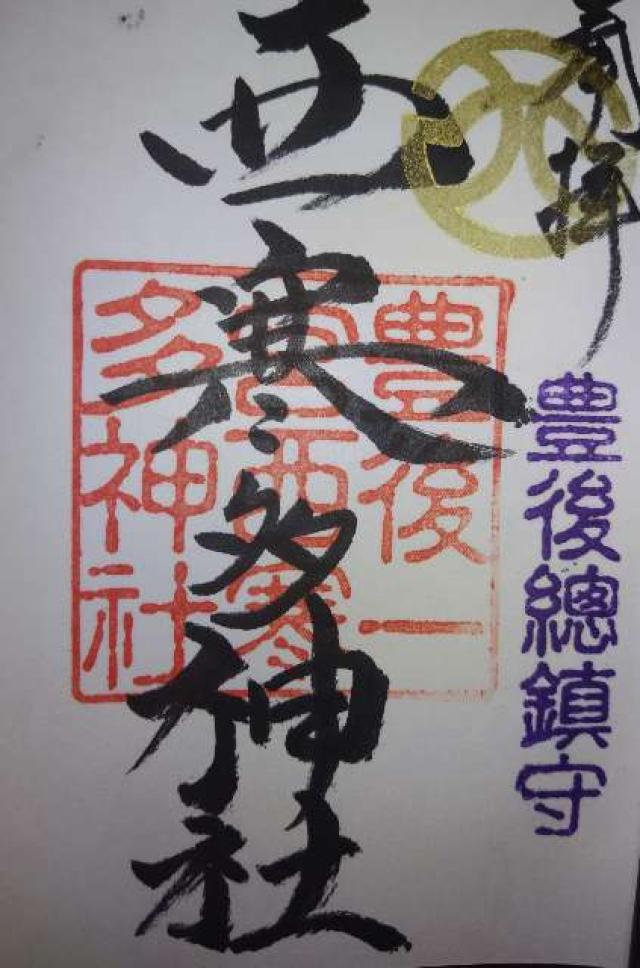 奉拝
豊後總鎮守
西寒多神社
豊後一
宮西寒
多神社